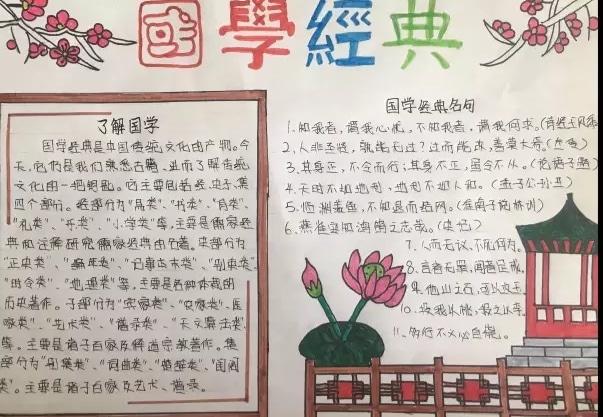 國學經典
了解国学
国学经典是中国传统文化的产物。今
天,它仍是我们熟悉古籍、进而了解传统
文化的一把钥匙。它主要包括经、史、子、集
四个部分。经部分为"易类"、"书类"、"诗类"、
"礼类"、"乐类"、"小学类"等,主要是儒家经
典和注释研究儒家经典的名著。史部分为
"正史类"、"编年类"、"纪事本末类"、"别史类"、
"时令类"、"地理类"等,主要是各种体裁的
历史著作。子部分为"儒家类"、"农家类"、"医
家类"、"艺术类"、"谱录类"、"天文算法类"
等。主要是诸子百家及释道宗教著作。集
部分为"别集类"、"词曲类"、"楚辞类"、"闺阁
类"。主要是诸子百家及艺术、谱录。
国学经典名句
1.知我者,谓我心忧,不知我者,谓我何求。(诗经王风
2.人非圣贤,孰能无过?过而能改,善莫大焉。(左传)
3.其身正,不令而行;其身不正,虽令不从。(论语子路)
4.天时不如地利,地利不如人和。(孟子公孙丑)
5.临渊羡鱼,不如退而结网。(淮南子说林训)
6.燕雀安知鸿鹄之志哉。(史记)
7.八而无仪,不死何为。
8.言者无罪,闻者足戒。
9.他山之石,可以攻玉。
10.投我以桃,报之以李。
11.多行不义必自毙。